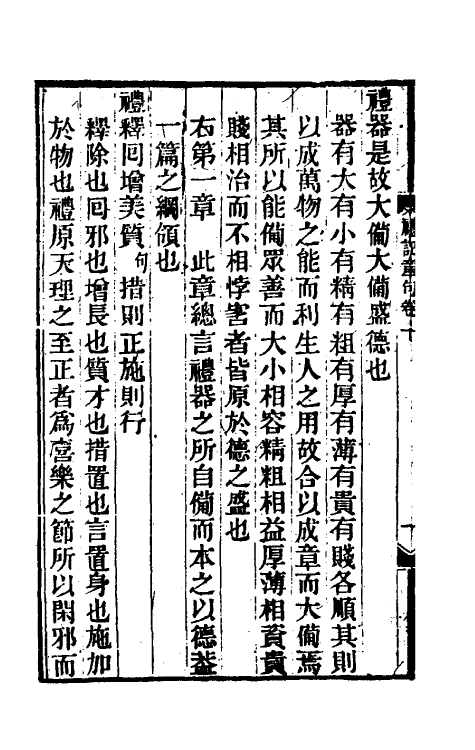 禮記章句卷十
禮器是故大備大備盛德也
器有大有小有精有粗有厚有薄有貴有賤各順其則
以成萬物之能而利生人之用故合以成章而大備焉
其所以能備眾善而大小相容精粗相益厚薄相資貴
賤相治而不相悖害者皆原於德之盛也
右第一章　此章總言禮器之所自備而本之以德益
一篇之綱領也
禮釋回增美質句措則正施則行
釋除也回邪也增長也質才也措置也言置身也施加
於物也禮原天理之至正者為喜樂之節所以閑邪而